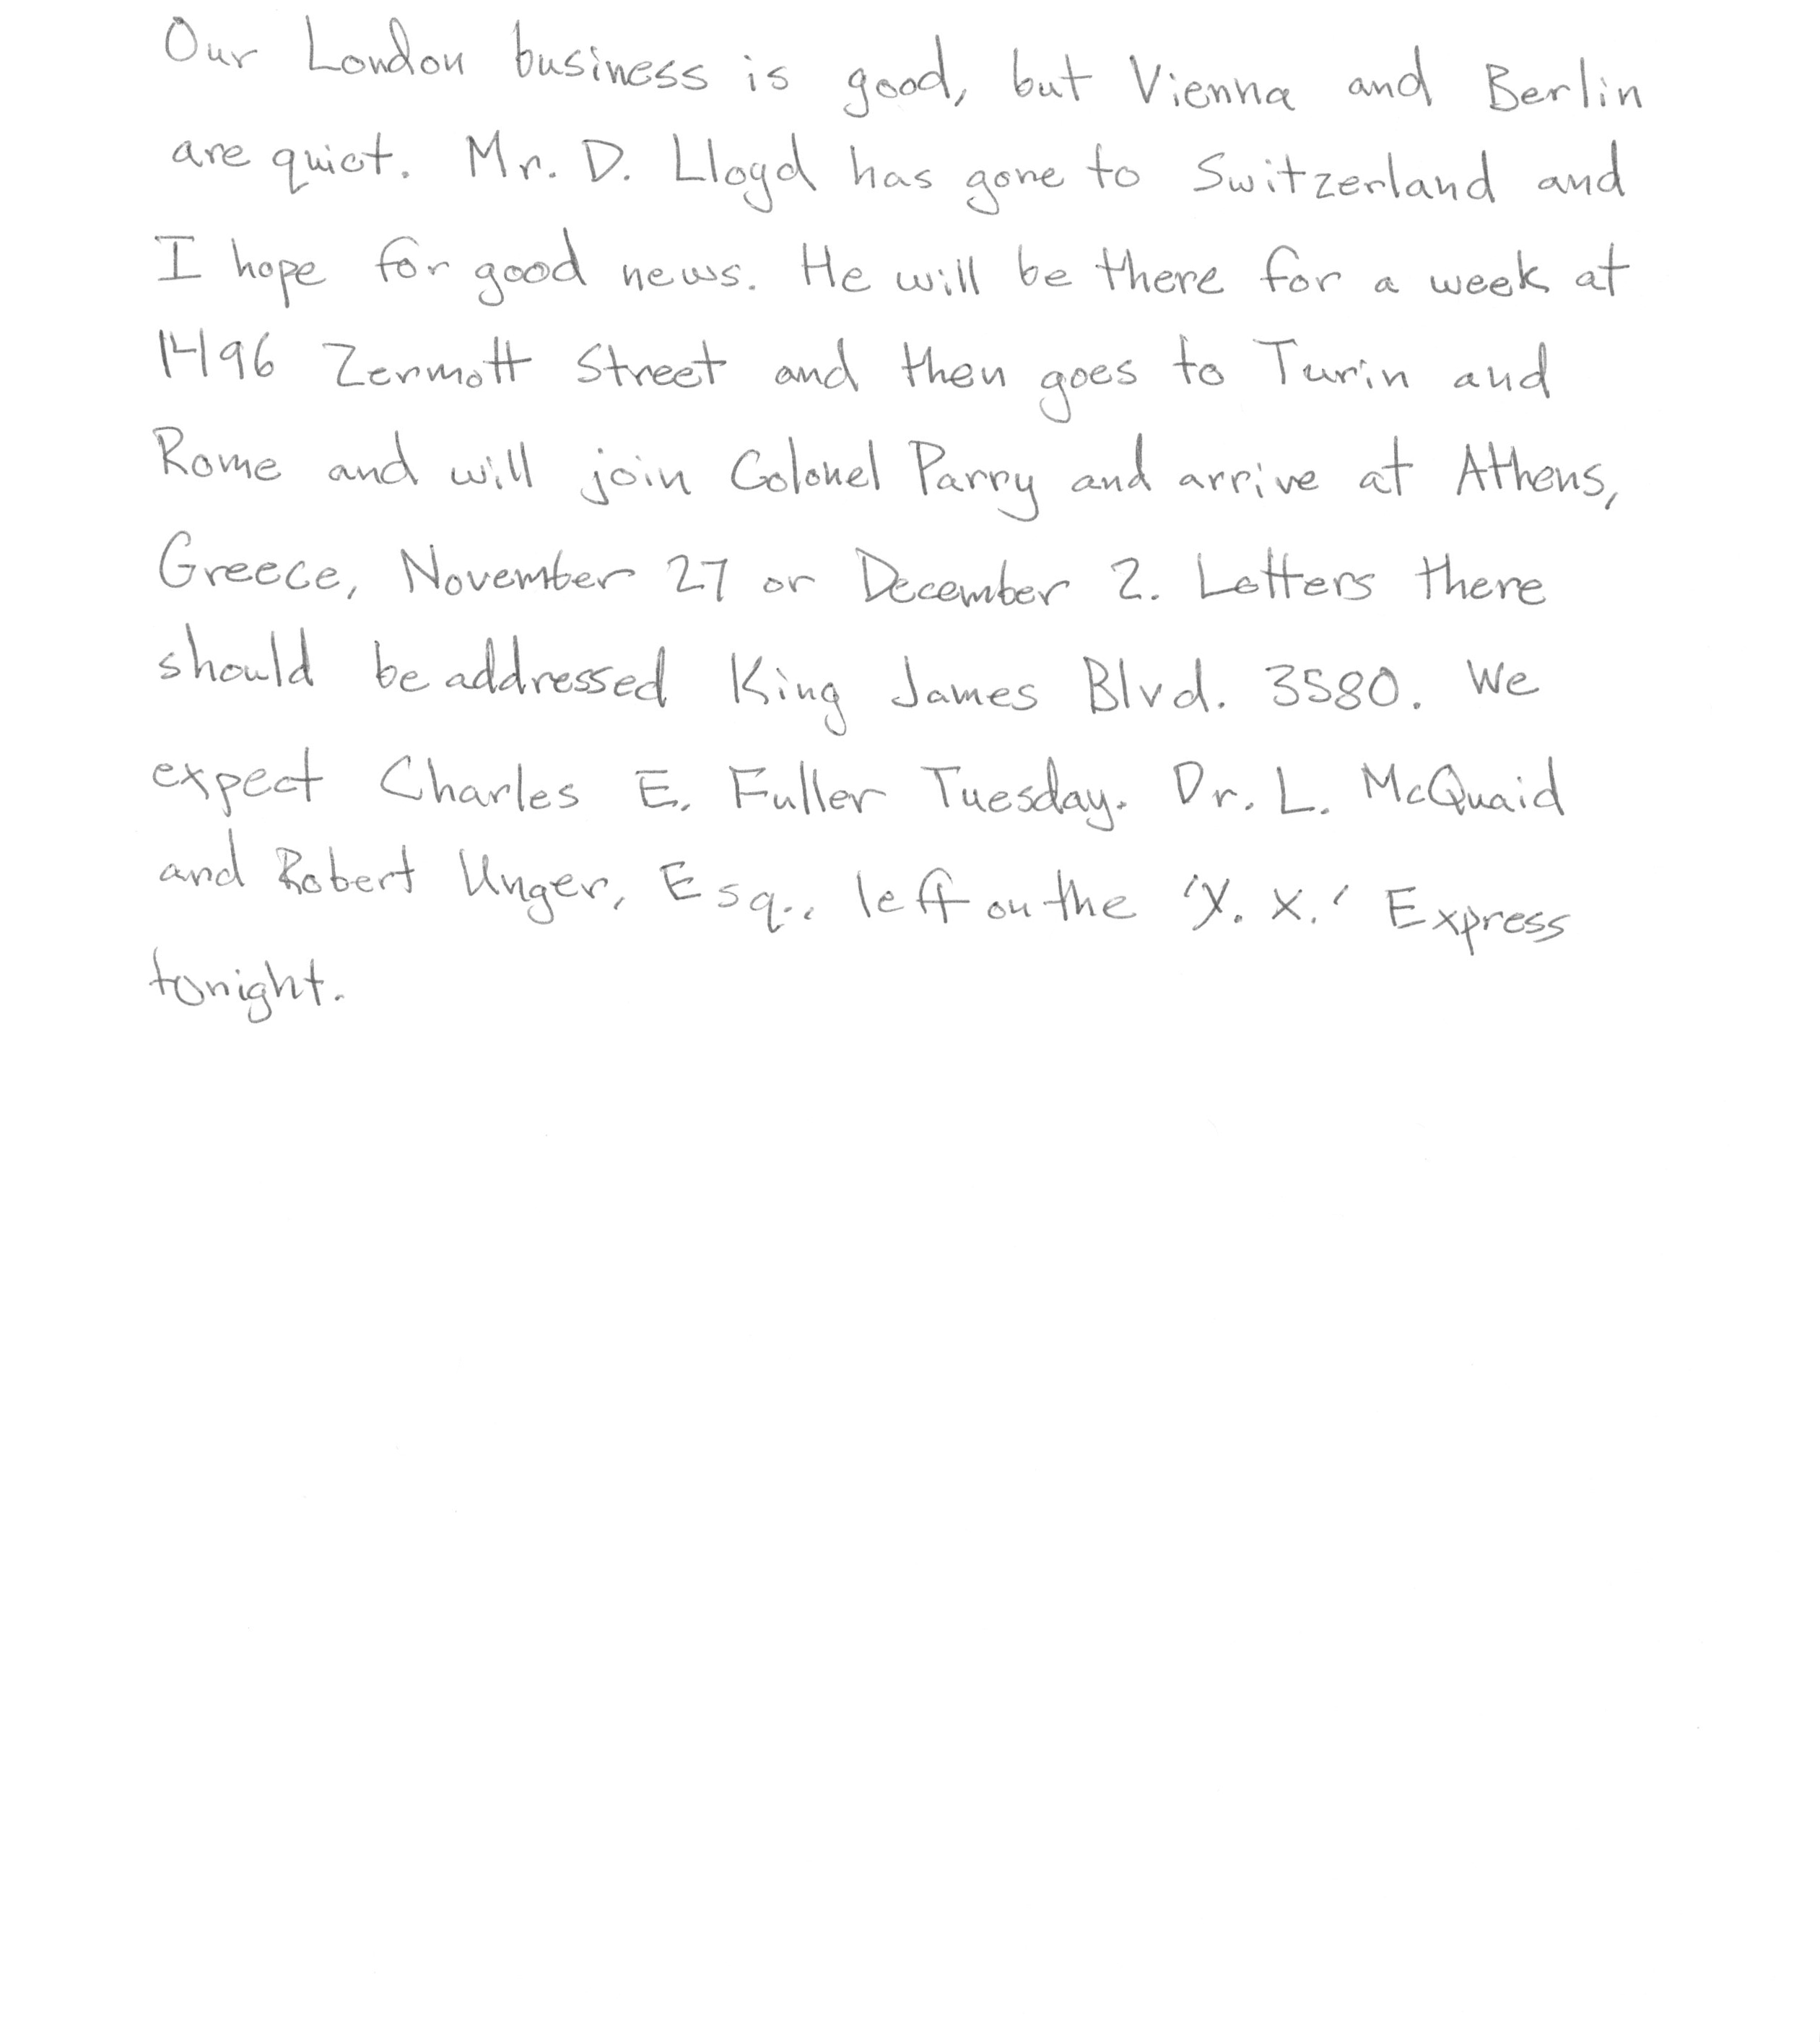 Our London business is good, but Vienna and Berlin
are quiet. Mr. D. Lloyd has gone to Switzerland and
I hope for good news. He will be there for a week at
1496 Zermott Street and then goes to Turin and
Rome and will join Colonel Parry and arrive at Athens,
Greece, November 27 or December 2. Letters there
should be addressed King James Blvd. 3580. We
expect Charles E. Fuller Tuesday. Dr. L. McQuaid
and Robert Unger, Esq., left on the 'X. X.' Express
tonight.